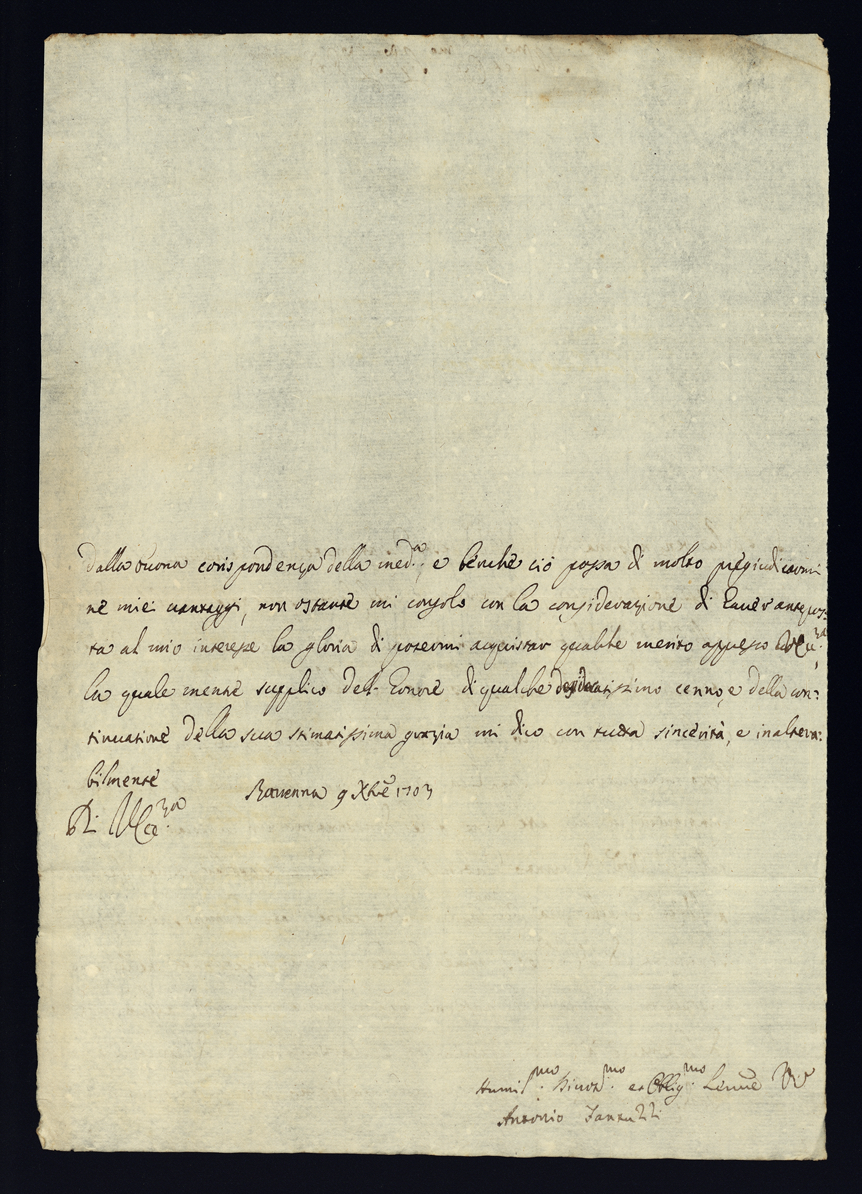 dalla buona corispondenza della med.a, e benche ciò possa di molto pregiudicarmi
ne miei vantaggi, non ostante mi consolo con la considerazione di haver antepos-
ta al mio interesse la gloria di potermi acquistar qualche merito appresso
la quale mentre supplico del honore di qualche desideratissimo cenno, e della con:
tinuatione della sua stimatissima grazia mi dico con tutta sincerità, e inaltera:
bilmente
Ravenna 9 Xbre 1703
Di
Humil.mo Divot.mo et Oblig.mo
Antonio